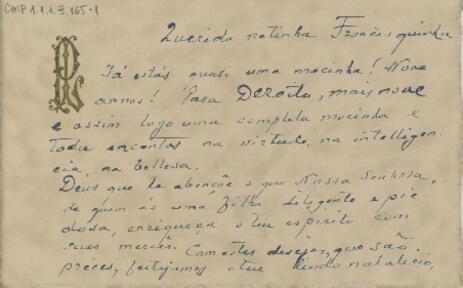 CMP 1.1.1.3.165-1
Querida netinha Francisquinha
Já estás quasi uma mocinha! Nove
annos! Para Dezoito, mais nove
e assim logo uma completa mocinha e
toda encantos na virtude, na intelligen
cia, na belleza.
Deus que te abençõe e que Nossa Senhora,
de quem és uma filha diligente e pie
dosa, enriqueça o teu espirito com
suas mercês. Com estes desejos, que são
préces, festejamos o teu lindo natalicio,